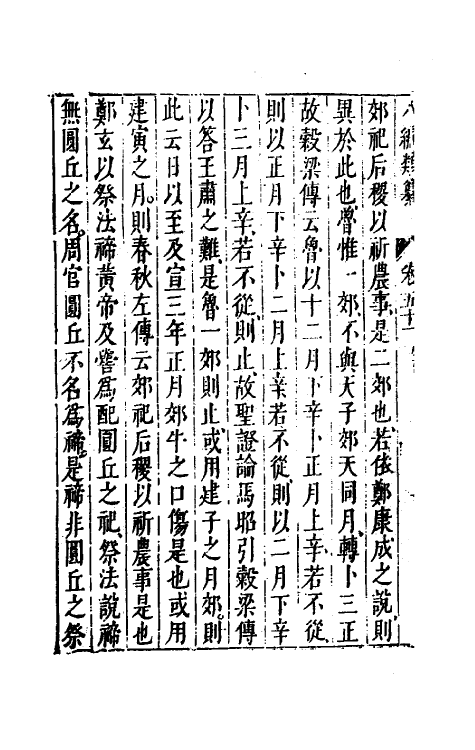 八編類纂 卷五十
郊祀后稷以祈農事是二郊也若依鄭康成之說則
異於此也魯惟一郊不與天子郊天同月轉卜三正
故穀梁傳云魯以十二月下辛卜正月上辛若不從
則以正月下辛卜二月上辛若不從則以二月下辛
卜三月上辛若不從則止故聖證論馬昭引穀梁傳
以答王肅之難是魯一郊則止或用建子之月郊則
此云日以至及宣三年正月郊牛之口傷是也或用
建寅之月則春秋左傳云郊祀后稷以祈農事是也
鄭玄以祭法禘黃帝及嚳爲配圜丘之祀祭法說禘
無圜丘之名周官圜丘不名爲禘是禘非圜丘之祭